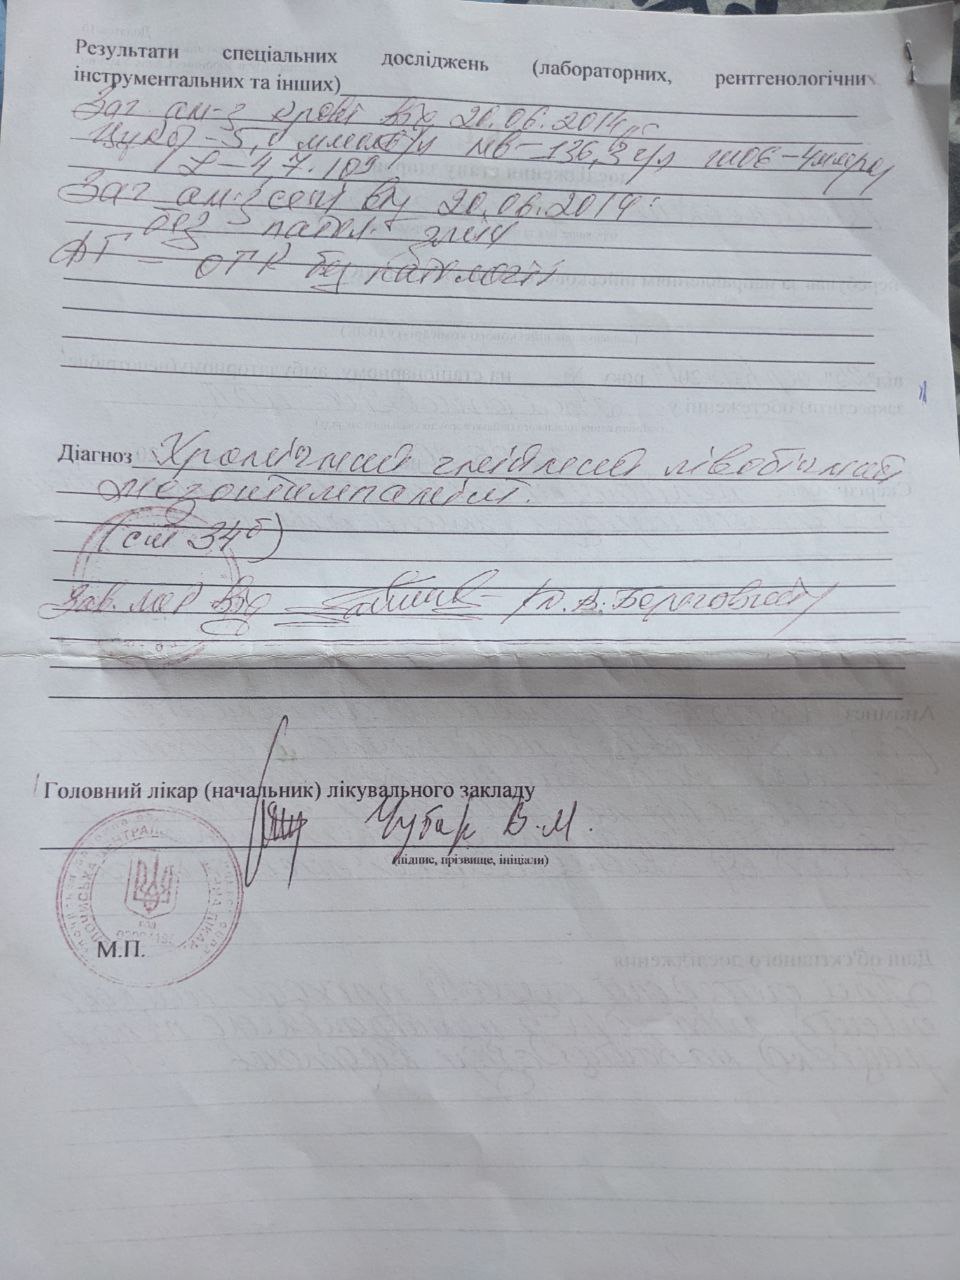 Результати спеціальних досліджень (лабораторних, рентгенологічних
інструментальних та інших)
Заг ан-з крові від 20.06.2014р
Цукор - 5,0 ммоль/л Нв - 136,3 г/л ШОЕ - 4мм/год
L - 4,7·10⁹
Заг ан-з сечі від 20.06.2014р
без патол. змін
ФГ - ОГК без патології
Діагноз Хронічний гнійний лівобічний
мезотимпаніт.
(ст 34б)
Зав. лор від В. Береговий
Головний лікар (начальник) лікувального закладу
Чубар В.М.
(підпис, прізвище, ініціали)
М.П.